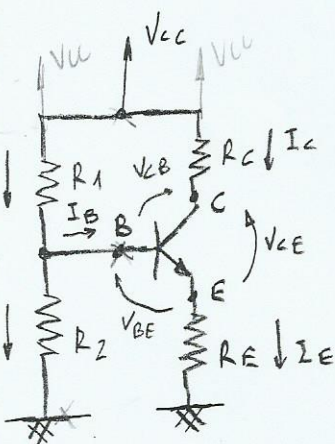 Vcc
Vcc
Vcc
R1
VCB
RC
IC
IB
B
C
VCE
E
VBE
R2
RE
IE